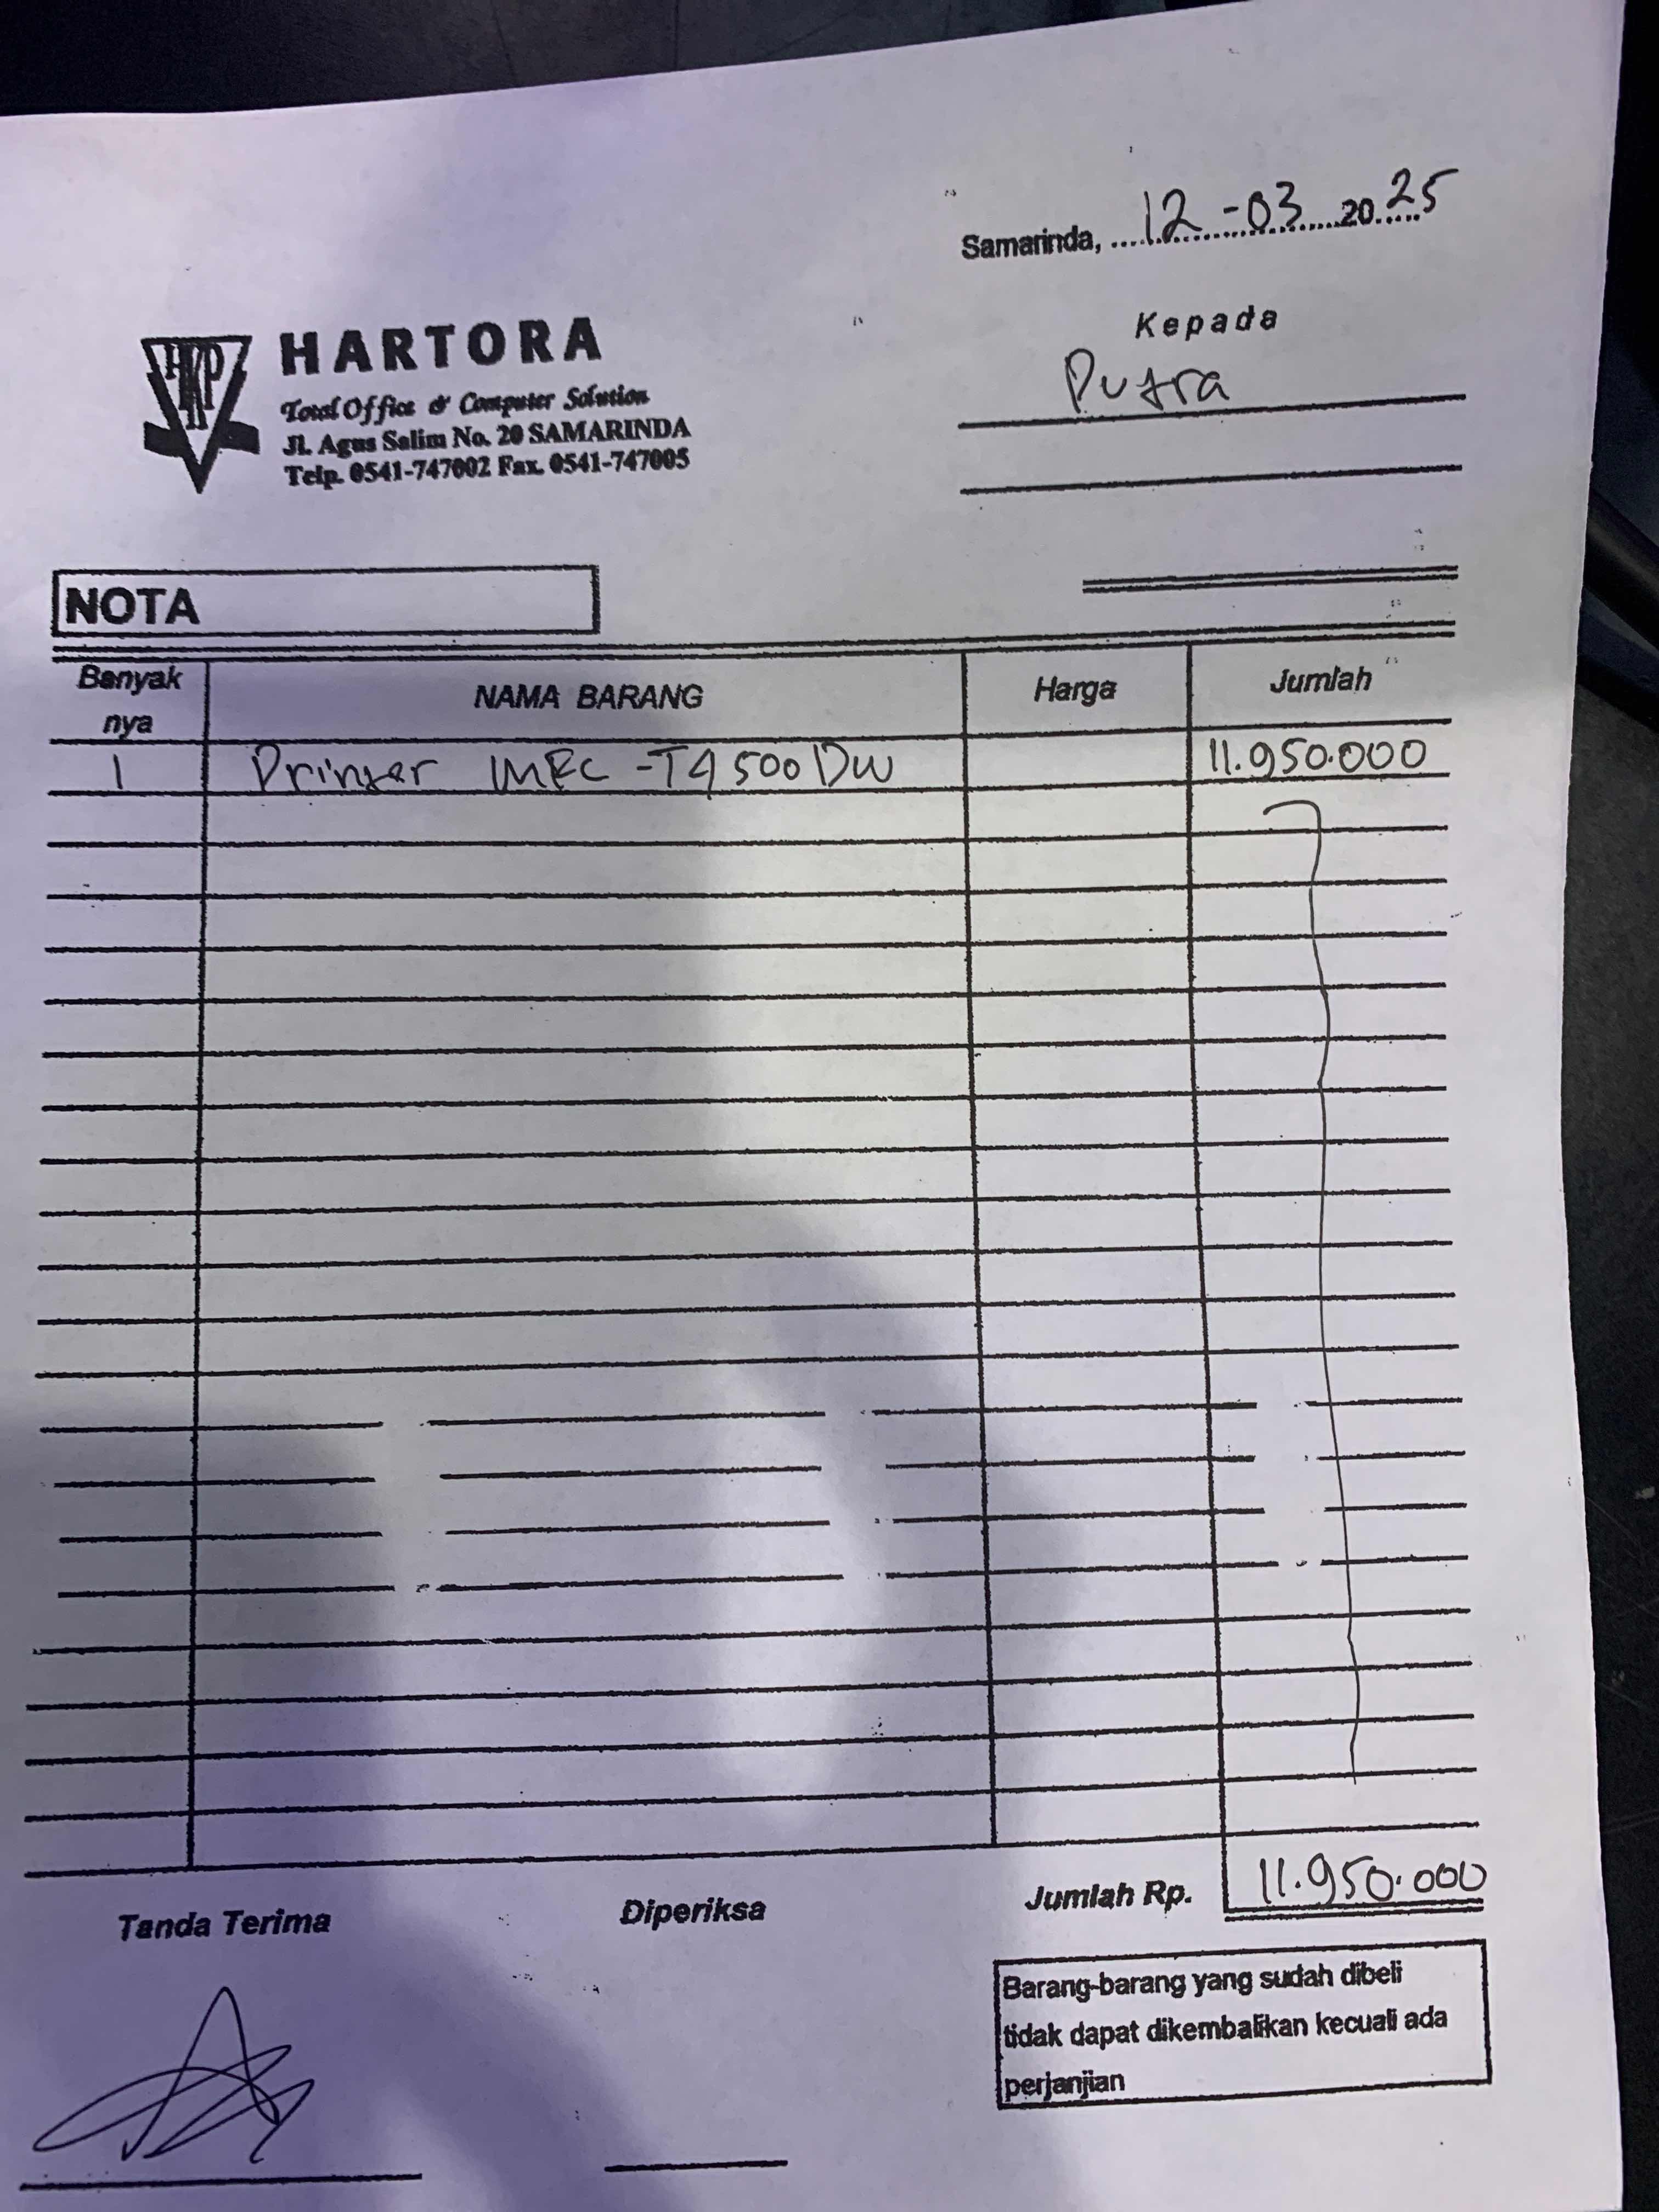 Samarinda, 12 -03 2025
Kepada
Putra
HKP
HARTORA
Total Office & Computer Solution
Jl. Agus Salim No. 20 SAMARINDA
Telp. 0541-747002 Fax. 0541-747005
NOTA
Banyak nya NAMA BARANG Harga Jumlah
1 Printer MFC -T4500DW 11.950.000
Jumlah Rp. 11.950.000
Tanda Terima Diperiksa
Barang-barang yang sudah dibeli
tidak dapat dikembalikan kecuali ada
perjanjian